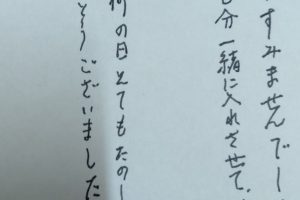 すみませんでし
分一緒に入れさせて
何の日とてもたのし
そうございました